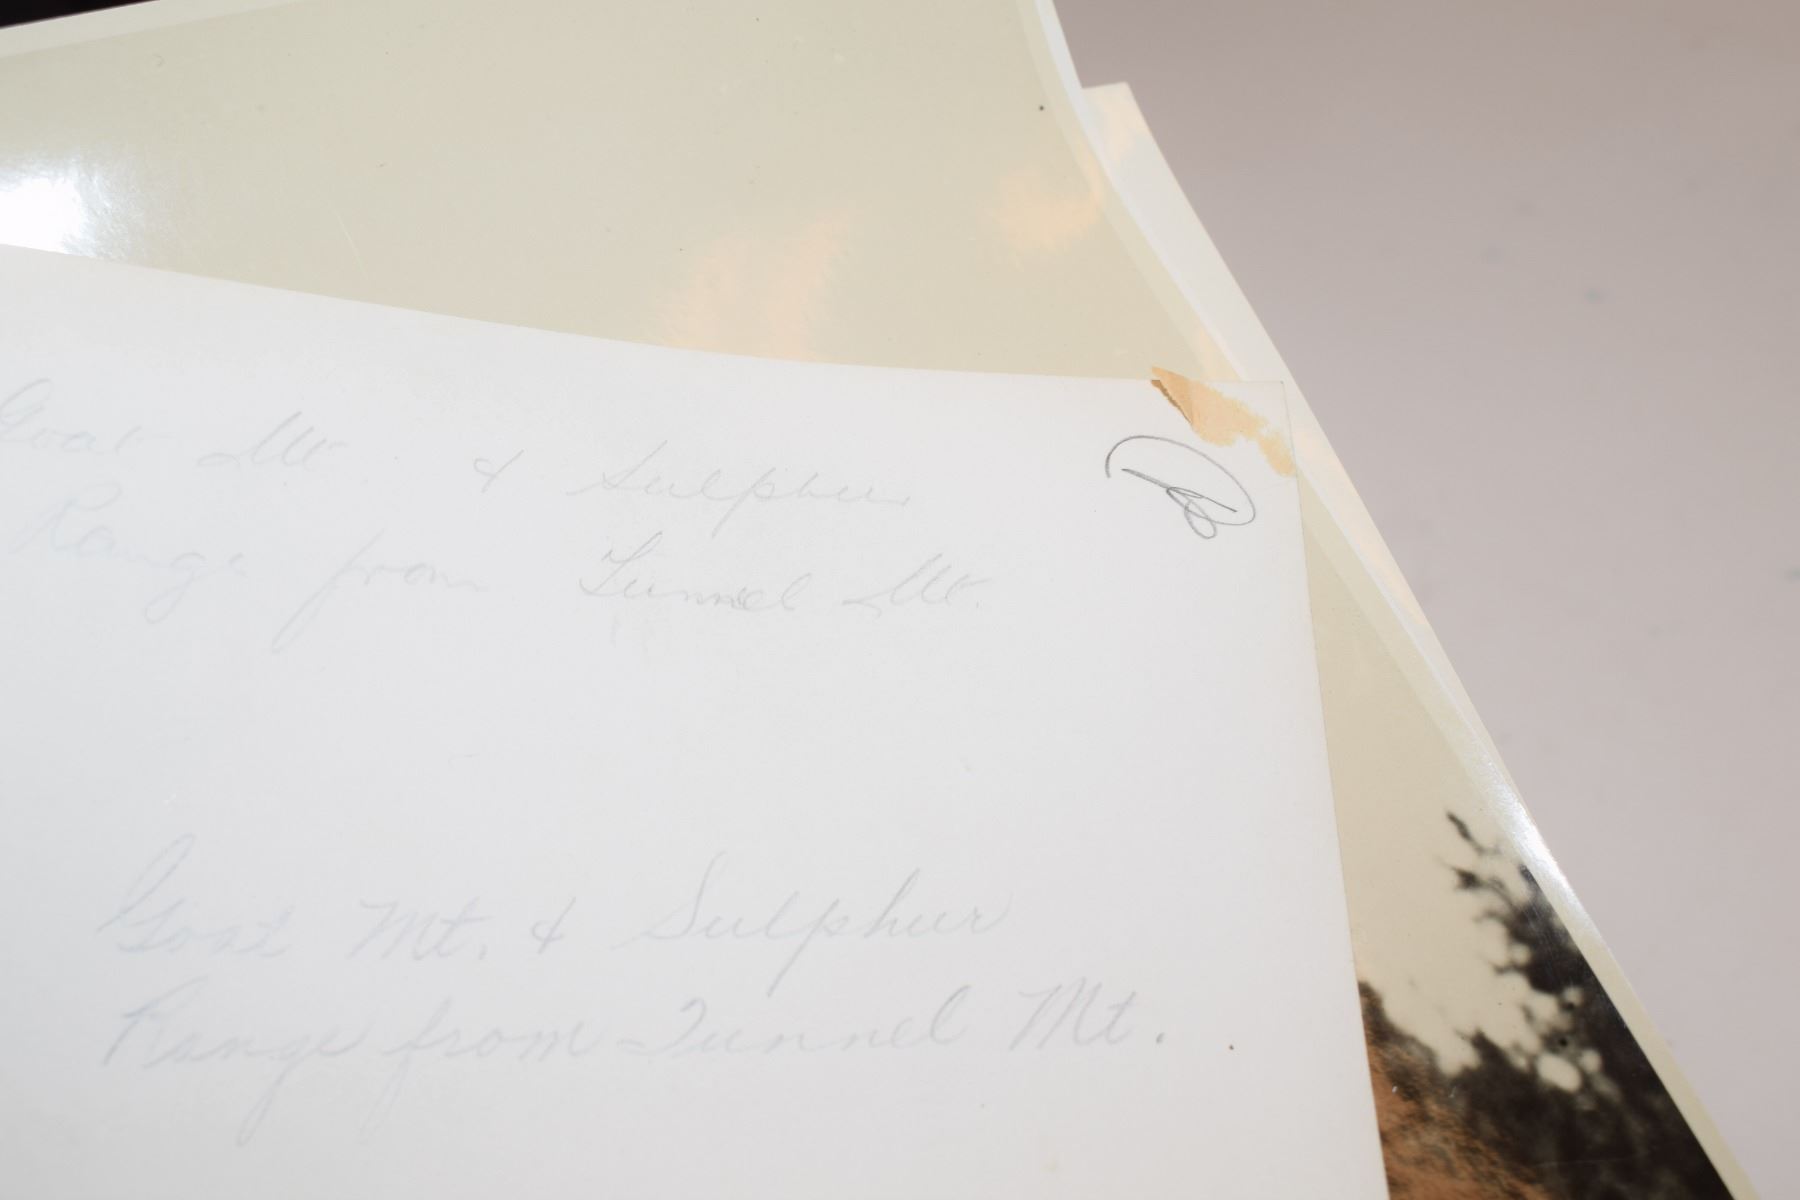 Goat Mt & Sulphur
Range from Tunnel Mt.
Goat Mt. & Sulphur
Range from Tunnel Mt.